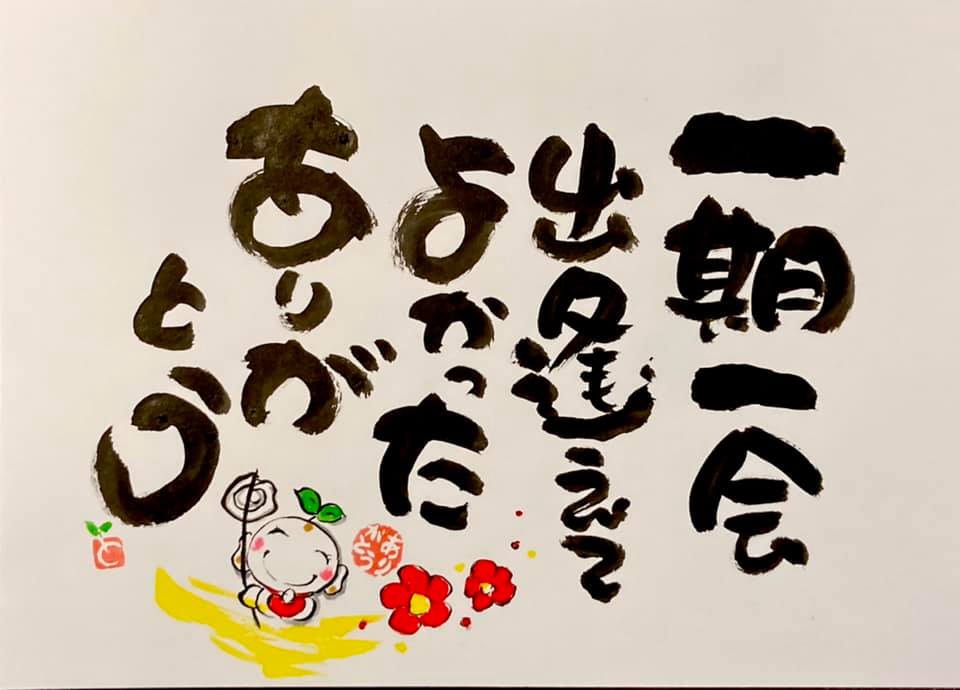 一期一会
出逢えて
よかった
ありが
とう